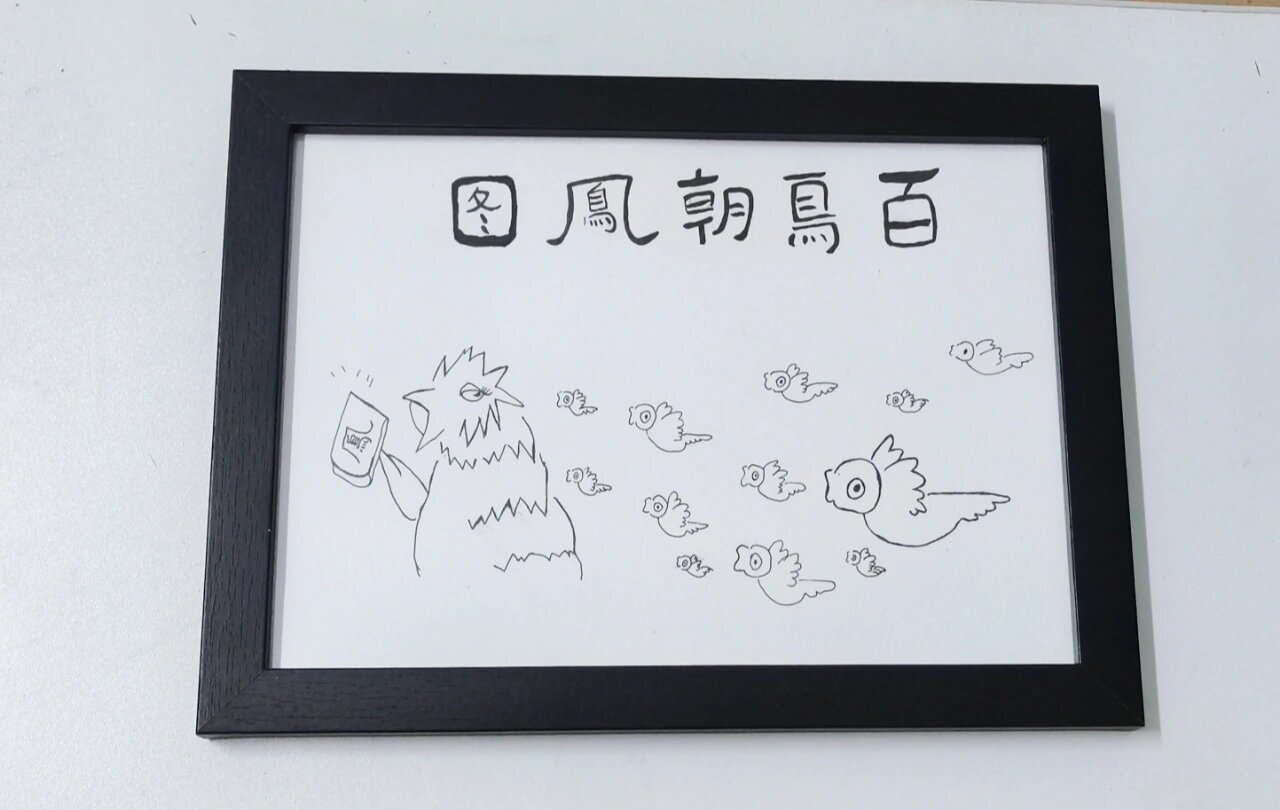 百鳥朝鳳图
鳳